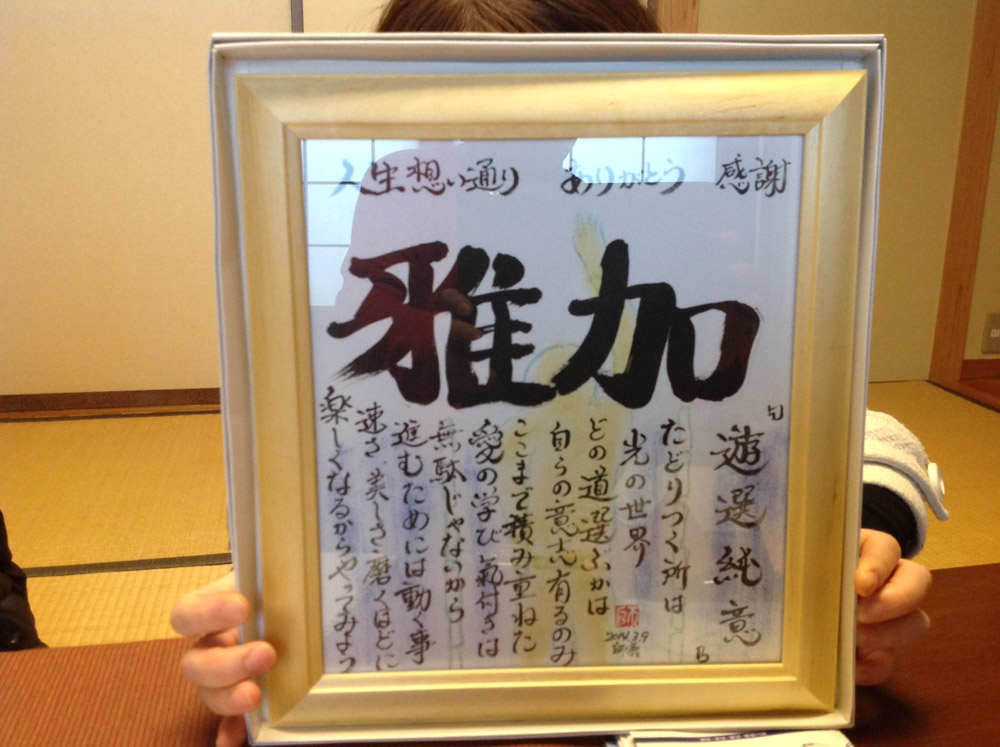 人生想い通り ありがとう 感謝
雅加
「遊選純意」
たどりつく所は
光の世界
どの道選ぶかは
自らの意志有るのみ
ここまで積み重ねた
愛の学び氣付きは
無駄じゃないから
進むためには動く事
速さ、美しさ、磨くほどに
楽しくなるからやってみよう
2014.3.9